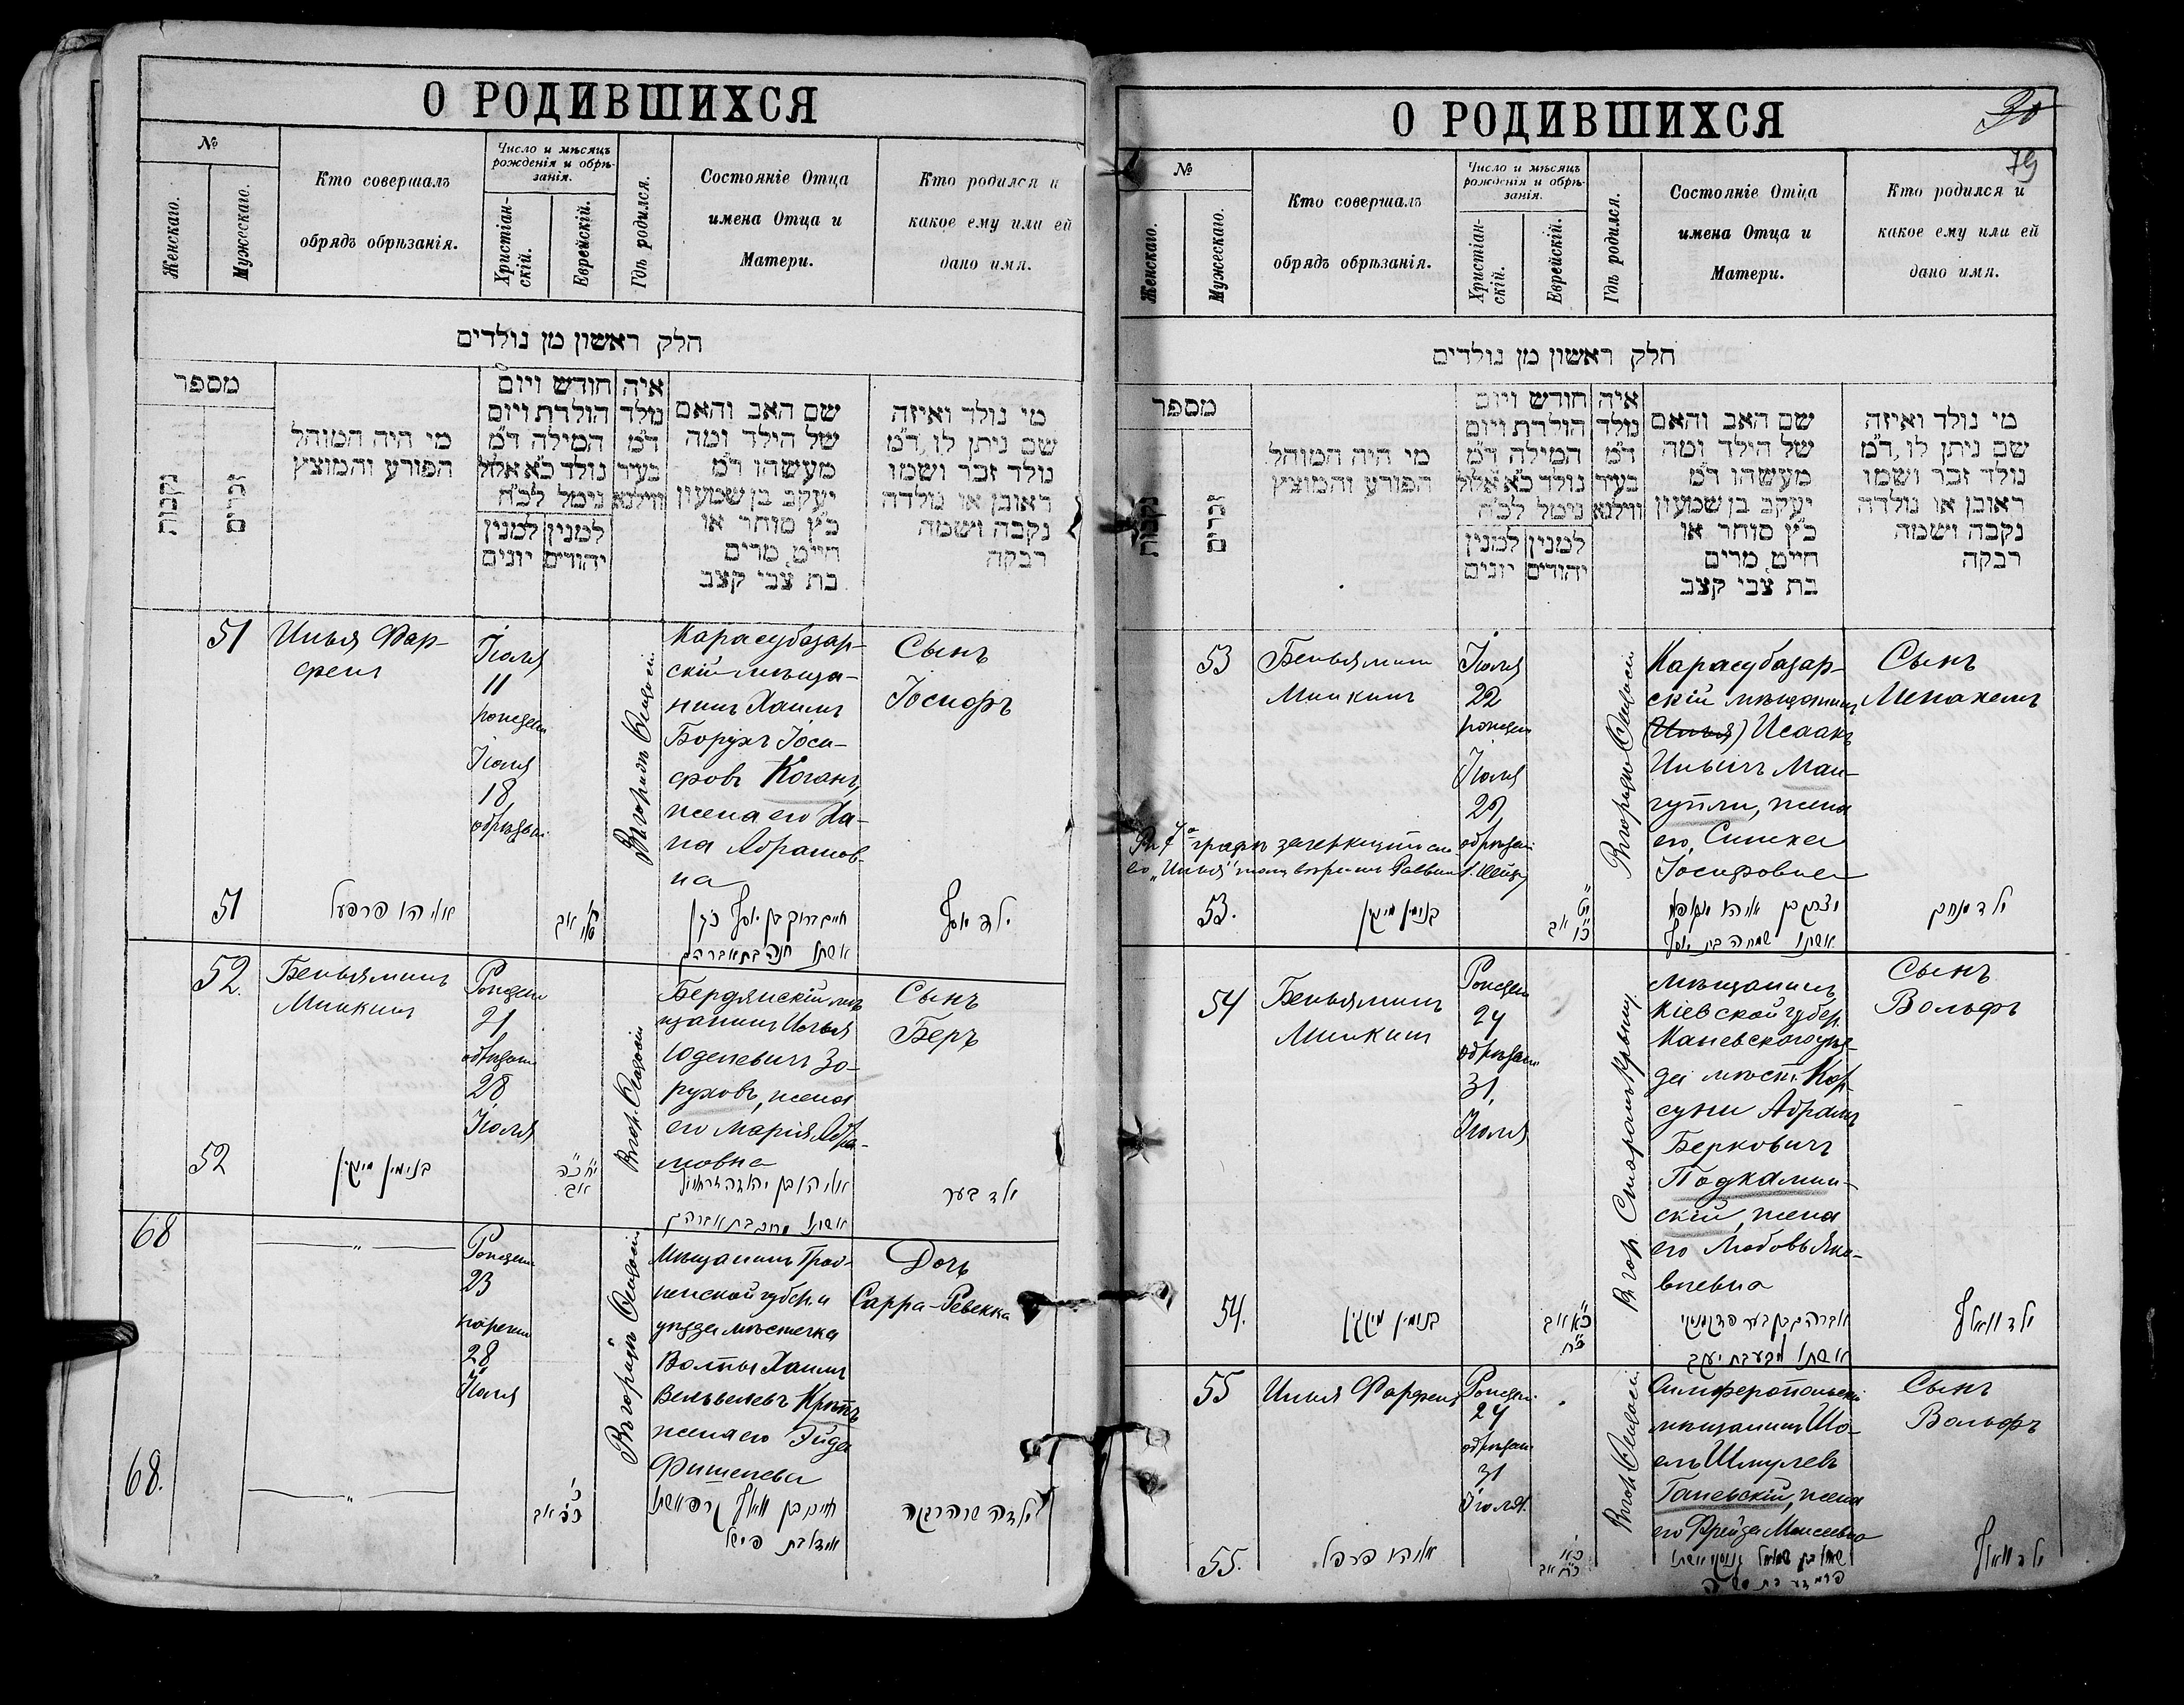 О РОДИВШИХСЯ
№
Женскаго.
Мужескаго.
Кто совершалъ
обрядъ обрѣзанія.
Число и мѣсяцъ
рожденія и обрѣ-
занія.
Христіан-
скій.
Еврейскій.
Гдѣ родился.
Состояніе Отца
имена Отца и
Матери.
Кто родился и
какое ему или ей
дано имя.
חלק ראשון מן נולדים
מספר
נקבות
זכרים
מי היה המוהל
הפורע והמוצץ
חודש ויום
הולדת ויום
המילה ד״מ
נולד כ״א אלול
נימל לכ״ח
למנין למנין
יהודים יונים
איה
נולד
ד״מ
בעיר
ווילנא
שם האב והאם
של הילד ומה
מעשהו ד״מ
יעקב בן שמעון
כ״ץ סוחר או
חייט, מרים
בת צבי קצב
מי נולד ואיזה
שם ניתן לו, ד״מ
נולד זכר ושמו
ראובן או נולדה
נקבה ושמה
רבקה
51
Илья Фар-
фель
Іюля
11
рожден
Іюля
18
обрѣзан
Въ городѣ Ѳеодосіи
Карасубазар-
скій мѣща-
нинъ Хаимъ
Борухъ Іоси-
фовъ Коганъ,
жена его Ха-
на Абрамов-
на
Сынъ
Іосифъ
51
אליהו פרפעל
חיים ברוך בן יוסף כהן
אשתו חנה בת אברהם
ילד יוסף
52.
Беньяминъ
Минкинъ
Рожден
21,
обрѣзан
28
Іюля
Въ гор. Ѳеодосіи
Бердянскій мѣ
щанинъ Илья
Юделевичъ Зо-
руховъ, жена
его Марія Абра-
мовна
Сынъ
Беръ
52
בנימין מינקין
י״ח כ״ה
אב
ילד בער
68
„
Рожден
23
наречен
28
Іюля
Въ городѣ Ѳеодосіи
Мѣщанинъ Грод-
ненской губер. и
уѣзда мѣстечка
Волпы Хаимъ
Вельвелевъ Крѣпъ
жена его Эйда
Фишелева
Дочь
Сарра-Ревекка
68.
„
ילדה שרה רבקה
О РОДИВШИХСЯ
30
79
№
Женскаго.
Мужескаго.
Кто совершалъ
обрядъ обрѣзанія.
Число и мѣсяцъ
рожденія и обрѣ-
занія.
Христіан-
скій.
Еврейскій.
Гдѣ родился.
Состояніе Отца
имена Отца и
Матери.
Кто родился и
какое ему или ей
дано имя.
חלק ראשון מן נולדים
מספר
נקבות
זכרים
מי היה המוהל
הפורע והמוצץ
חודש ויום
הולדת ויום
המילה ד״מ
נולד כ״א אלול
נימל לכ״ח
למנין למנין
יהודים יונים
איה
נולד
ד״מ
בעיר
ווילנא
שם האב והאם
של הילד ומה
מעשהו ד״מ
יעקב בן שמעון
כ״ץ סוחר או
חייט, מרים
בת צבי קצב
מי נולד ואיזה
שם ניתן לו, ד״מ
נולד זכר ושמו
ראובן או נולדה
נקבה ושמה
רבקה
53
Беньяминъ
Минкинъ
Іюля
22
рожден
Іюля
29,
обрѣзан
Въ городѣ Ѳеодосіи
Карасубазар-
скій мѣщанинъ
(Илья) Исаакъ
Ильичъ Ман-
гупли, жена
его, Симха
Іосифовна
Сынъ
Менахемъ
53.
בנימין מינקין
אשתו שמחה בת יוסף
ילד מנחם
54
Беньяминъ
Минкинъ
Рожден
24
обрѣзан
31,
Іюля
Въ гор. Старомъ Крыму
Мѣщанинъ
Кіевской губер.
Каневского уѣз-
да мѣст. Кор-
суни Абрамъ
Берковичъ
Подкамин-
скій, жена
его Любовь Яко-
влевна
Сынъ
Вольфъ
54.
בנימין מינקין
כ״א אב
כ״ח
ילד וואלף
55
Илья Фарфель
Рожден
24
обрѣзан
31
Іюля.
Въ гор. Ѳеодосіи
Симферопольскій
мѣщанинъ Шо-
елъ Шмулевъ
Ганевскій, жена
его Фрейда Моисеевна
Сынъ
Вольфъ
55.
אליהו פרפל
כ״א
כ״ח אב
ילד וואלף